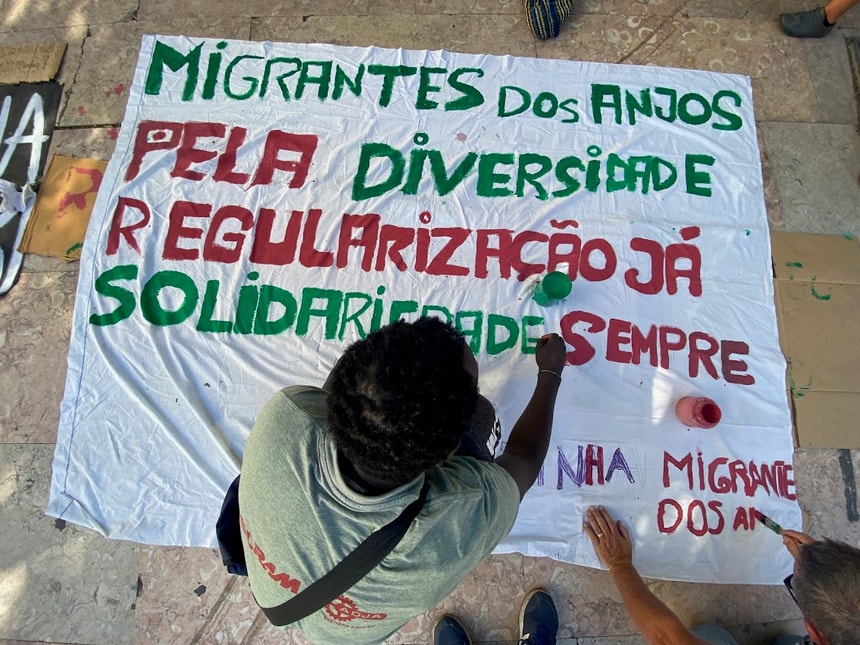 MIGRANTES DOS ANJOS
PELA DIVERSIDADE
REGULARIZAÇÃO JÁ
SOLIDARIEDADE SEMPRE
MIGRANTE
DOS AN